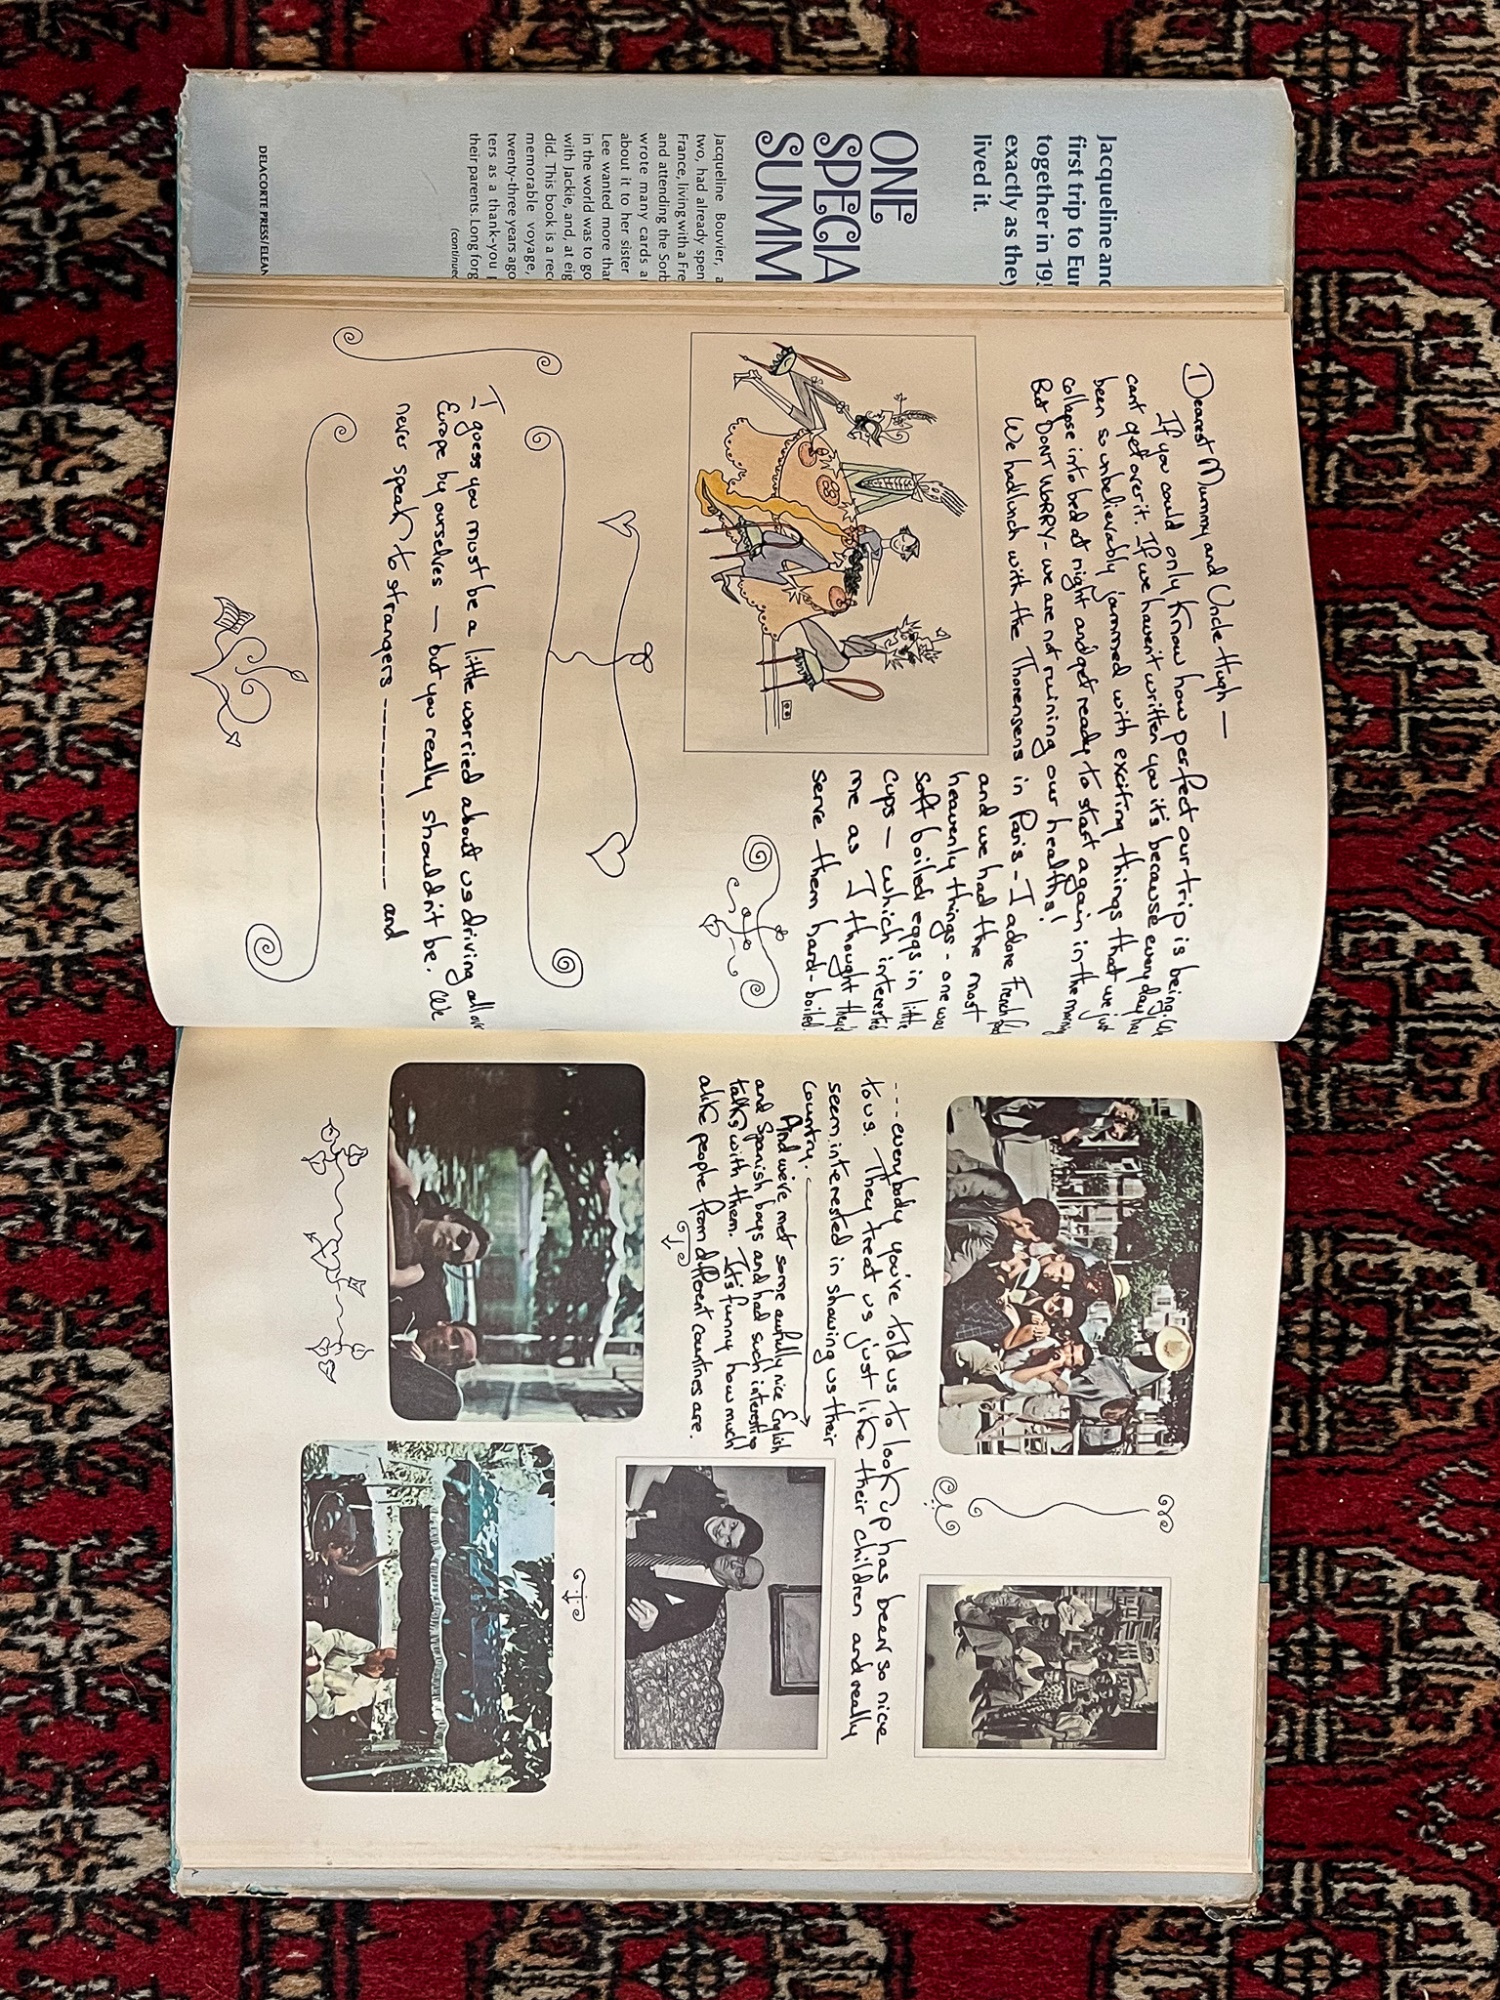 Jacqueline and
first trip to Eur
together in 195
exactly as they
lived it.
ONE
SPECIA
SUMM
Jacqueline Bouvier, a
two, had already spen
France, living with a Fre
and attending the Sorb
wrote many cards a
about it to her sister
Lee wanted more tha
in the world was to go
with Jackie, and, at eig
did. This book is a rec
memorable voyage,
twenty-three years ago
ters as a thank-you
their parents. Long forg
(continued
DELACORTE PRESS/ELEAN
Dearest Mummy and Uncle Hugh —
If you could only know how perfect our trip is being. We
cant get over it. If we haven't written you it's because every day has
been so unbelievably jammed with exciting things that we just
collapse into bed at night and get ready to start again in the morning
But DONT WORRY - we are not ruining our healths!
We had lunch with the Thorensens in Paris - I adore French food
and we had the most
heavenly things - one was
soft boiled eggs in little
cups — which interested
me as I thought they'd
serve them hard-boiled.
I guess you must be a little worried about us driving all over
Europe by ourselves — but you really shouldn't be. We
never speak to strangers ------------ and
---everybody you've told us to look up has been so nice
to us. They treat us just like their children and really
seem interested in showing us their
country.
And we've met some awfully nice English
and Spanish boys and had such interesting
talks with them. It's funny how much
alike people from different countries are.